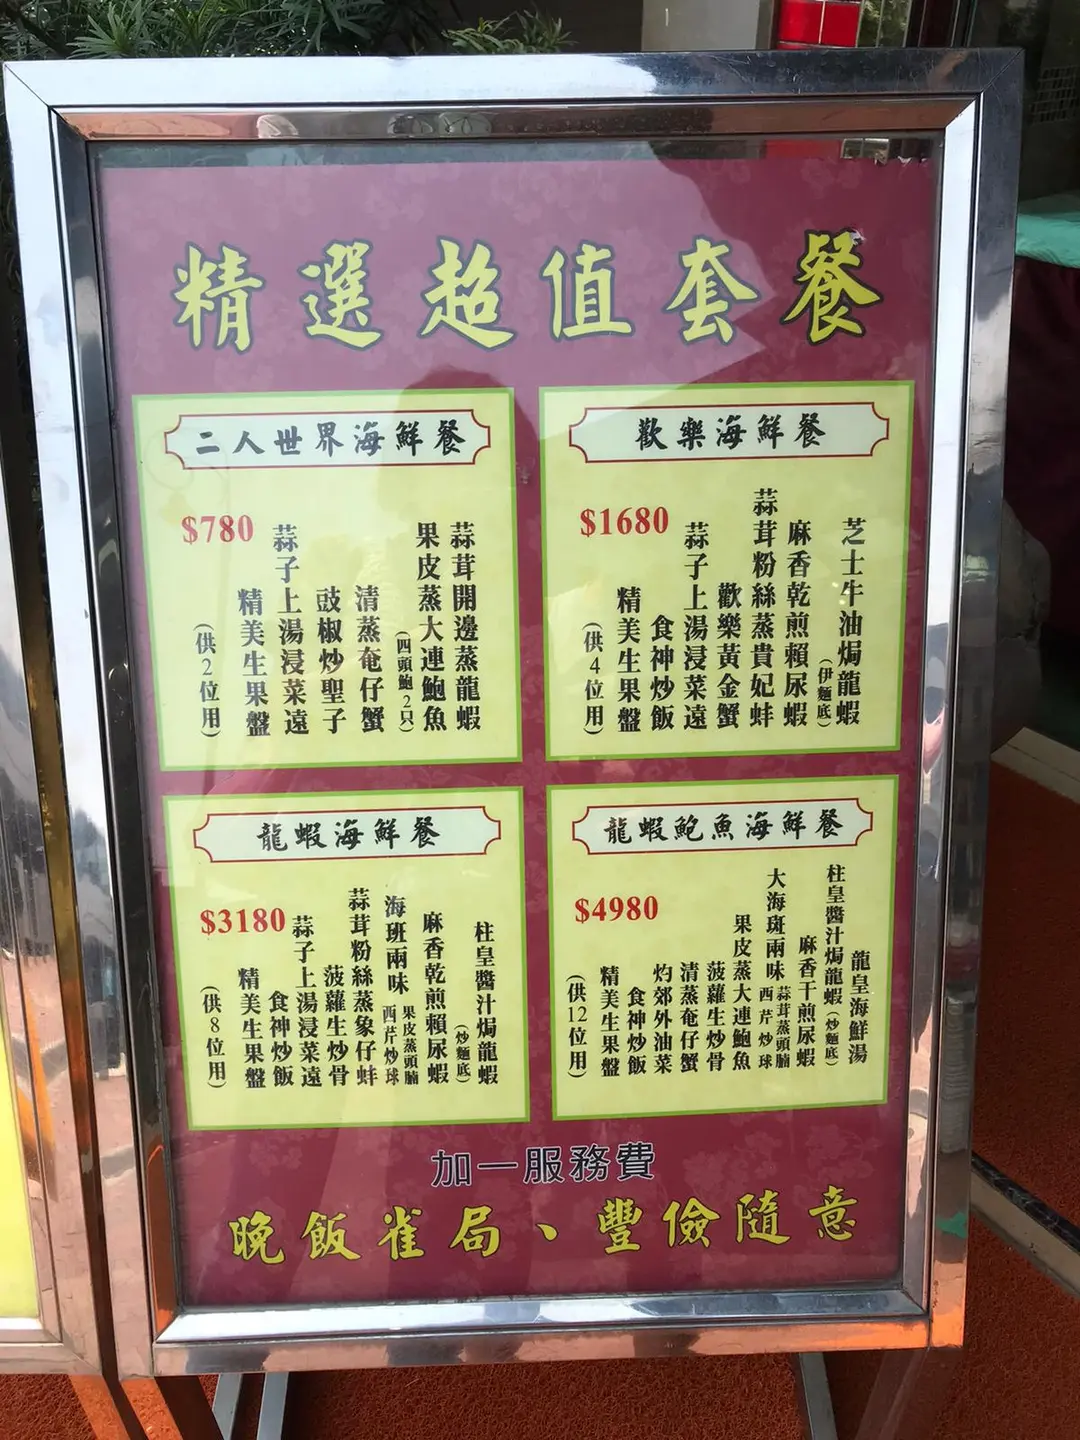 精選超值套餐
二人世界海鮮餐
$780
蒜茸開邊蒸龍蝦
果皮蒸大連鮑魚
(四頭鮑2只)
清蒸奄仔蟹
豉椒炒聖子
蒜子上湯浸菜遠
精美生果盤
(供2位用)
歡樂海鮮餐
$1680
芝士牛油焗龍蝦
(伊麵底)
麻香乾煎賴尿蝦
蒜茸粉絲蒸貴妃蚌
歡樂黃金蟹
蒜子上湯浸菜遠
食神炒飯
精美生果盤
(供4位用)
龍蝦海鮮餐
$3180
柱皇醬汁焗龍蝦
(炒麵底)
麻香乾煎賴尿蝦
海班兩味
果皮蒸頭腩
西芹炒球
蒜茸粉絲蒸象仔蚌
菠蘿生炒骨
蒜子上湯浸菜遠
食神炒飯
精美生果盤
(供8位用)
龍蝦鮑魚海鮮餐
$4980
龍皇海鮮湯
柱皇醬汁焗龍蝦(炒麵底)
麻香干煎尿蝦
大海斑兩味
蒜茸蒸頭腩
西芹炒球
果皮蒸大連鮑魚
菠蘿生炒骨
清蒸奄仔蟹
灼郊外油菜
食神炒飯
精美生果盤
(供12位用)
加一服務費
晚飯雀局、豐儉隨意